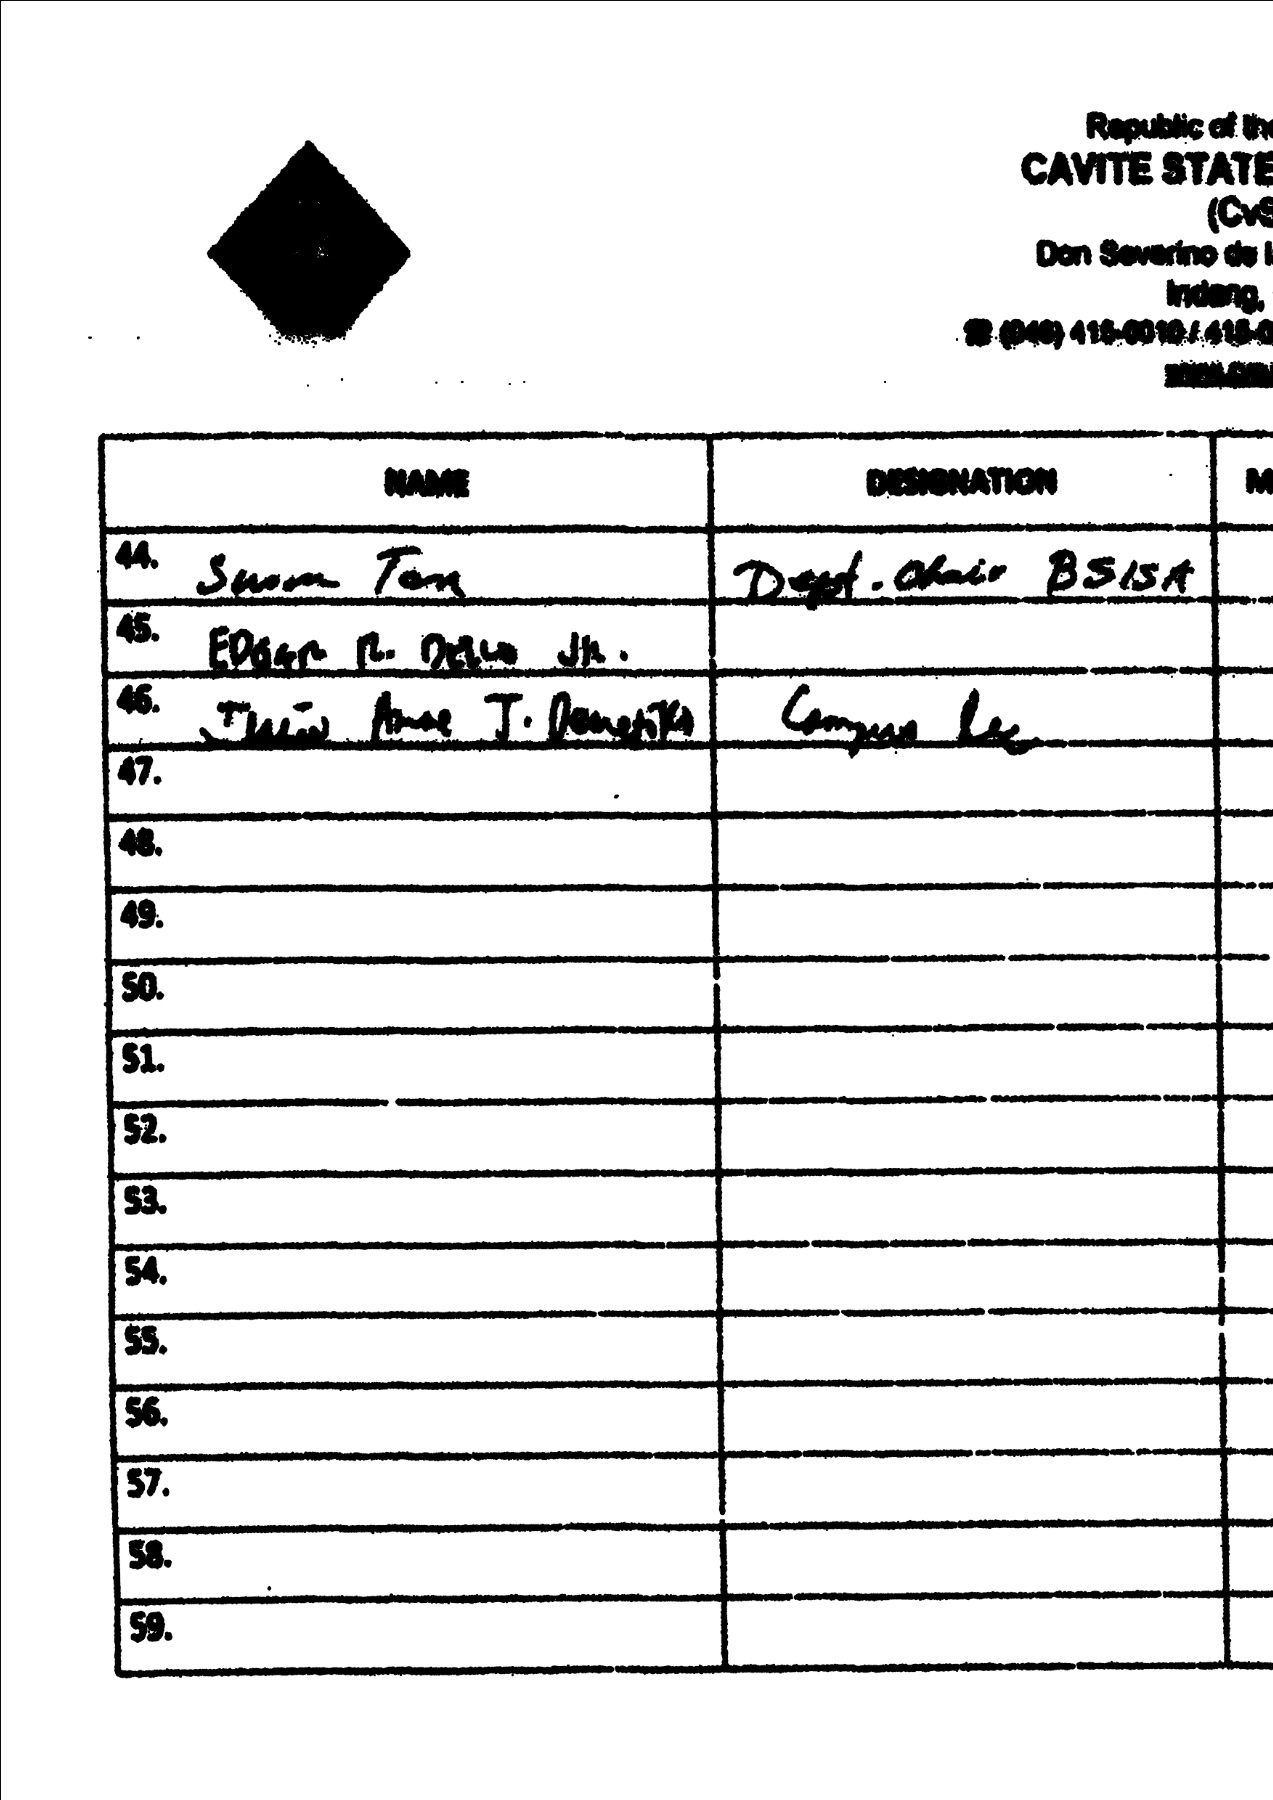 Republic of the
CAVITE STATE
(CvS
Don Severino de l
Indang,
☎ (046) 415-0010 / 415-0
NAME DESIGNATION M
44. Susan Tan Dept. Chair BSISA
45. EDGAR R. JR.
46. Anne T. Campus
47.
48.
49.
50.
51.
52.
53.
54.
55.
56.
57.
58.
59.